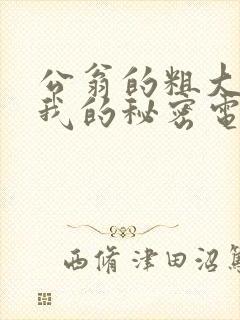 公翁的粗大
我的秘密电
西脩津田沼篤